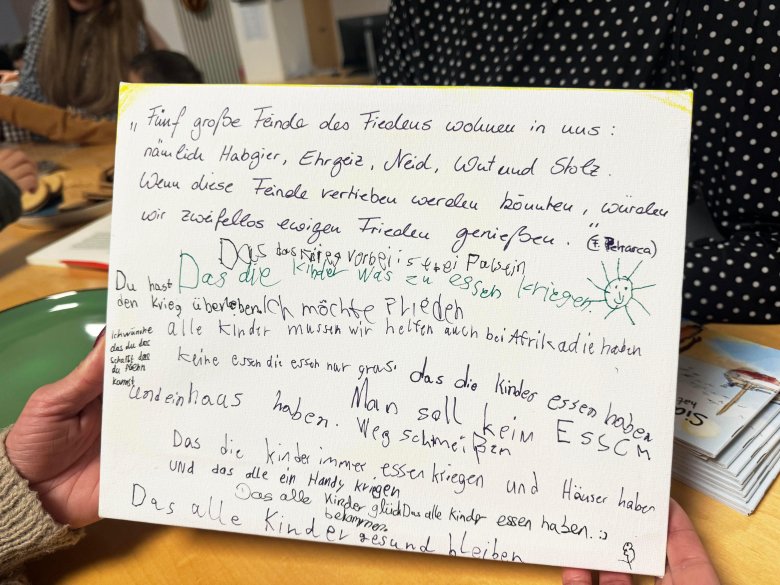 „Fünf große Feinde des Fiedens wohnen in uns:
nämlich Habgier, Ehrgeiz, Neid, Wut und Stolz.
Wenn diese Feinde vertrieben werden könnten, würden
wir zweifellos ewigen Frieden genießen."
(F. Petrarca)
Das das Krieg vorbei ist bei Palstein
Das die kinder was zu essen kriegen
Du hast
den krieg überleben
Ich möchte Frieden
ichwünsche
das du das
schafst das
du
kannst
alle kinder mussen wir helfen auch bei Afrika die haben
keine essen die essen nur gras.
das die kinder essen haben
undeinhaus haben.
Man soll kein ESSCn
weg schmeißen
Das die kinder immer essen kriegen und Häuser haben
und das alle ein Handy kriegen
Das alle kinder glück
bekommen.
Das alle kinder essen haben. :)
Das alle Kinder gesund bleiben
Sie